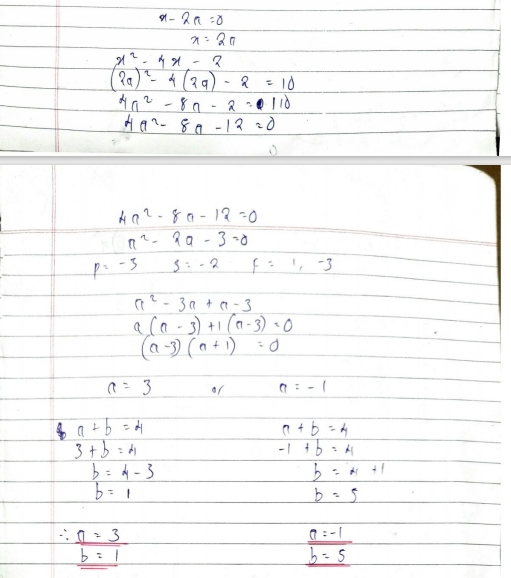 x - 2a = 0
x = 2a
x² - 4x - 2
(2a)² - 4(2a) - 2 = 10
4a² - 8a - 2 = 10
4a² - 8a - 12 = 0
4a² - 8a - 12 = 0
a² - 2a - 3 = 0
p = -3 s = -2 f = 1, -3
a² - 3a + a - 3
a(a - 3) + 1(a - 3) = 0
(a - 3)(a + 1) = 0
a = 3 or a = -1
a + b = 4 a + b = 4
3 + b = 4 -1 + b = 4
b = 4 - 3 b = 4 + 1
b = 1 b = 5
∴ a = 3 a = -1
b = 1 b = 5